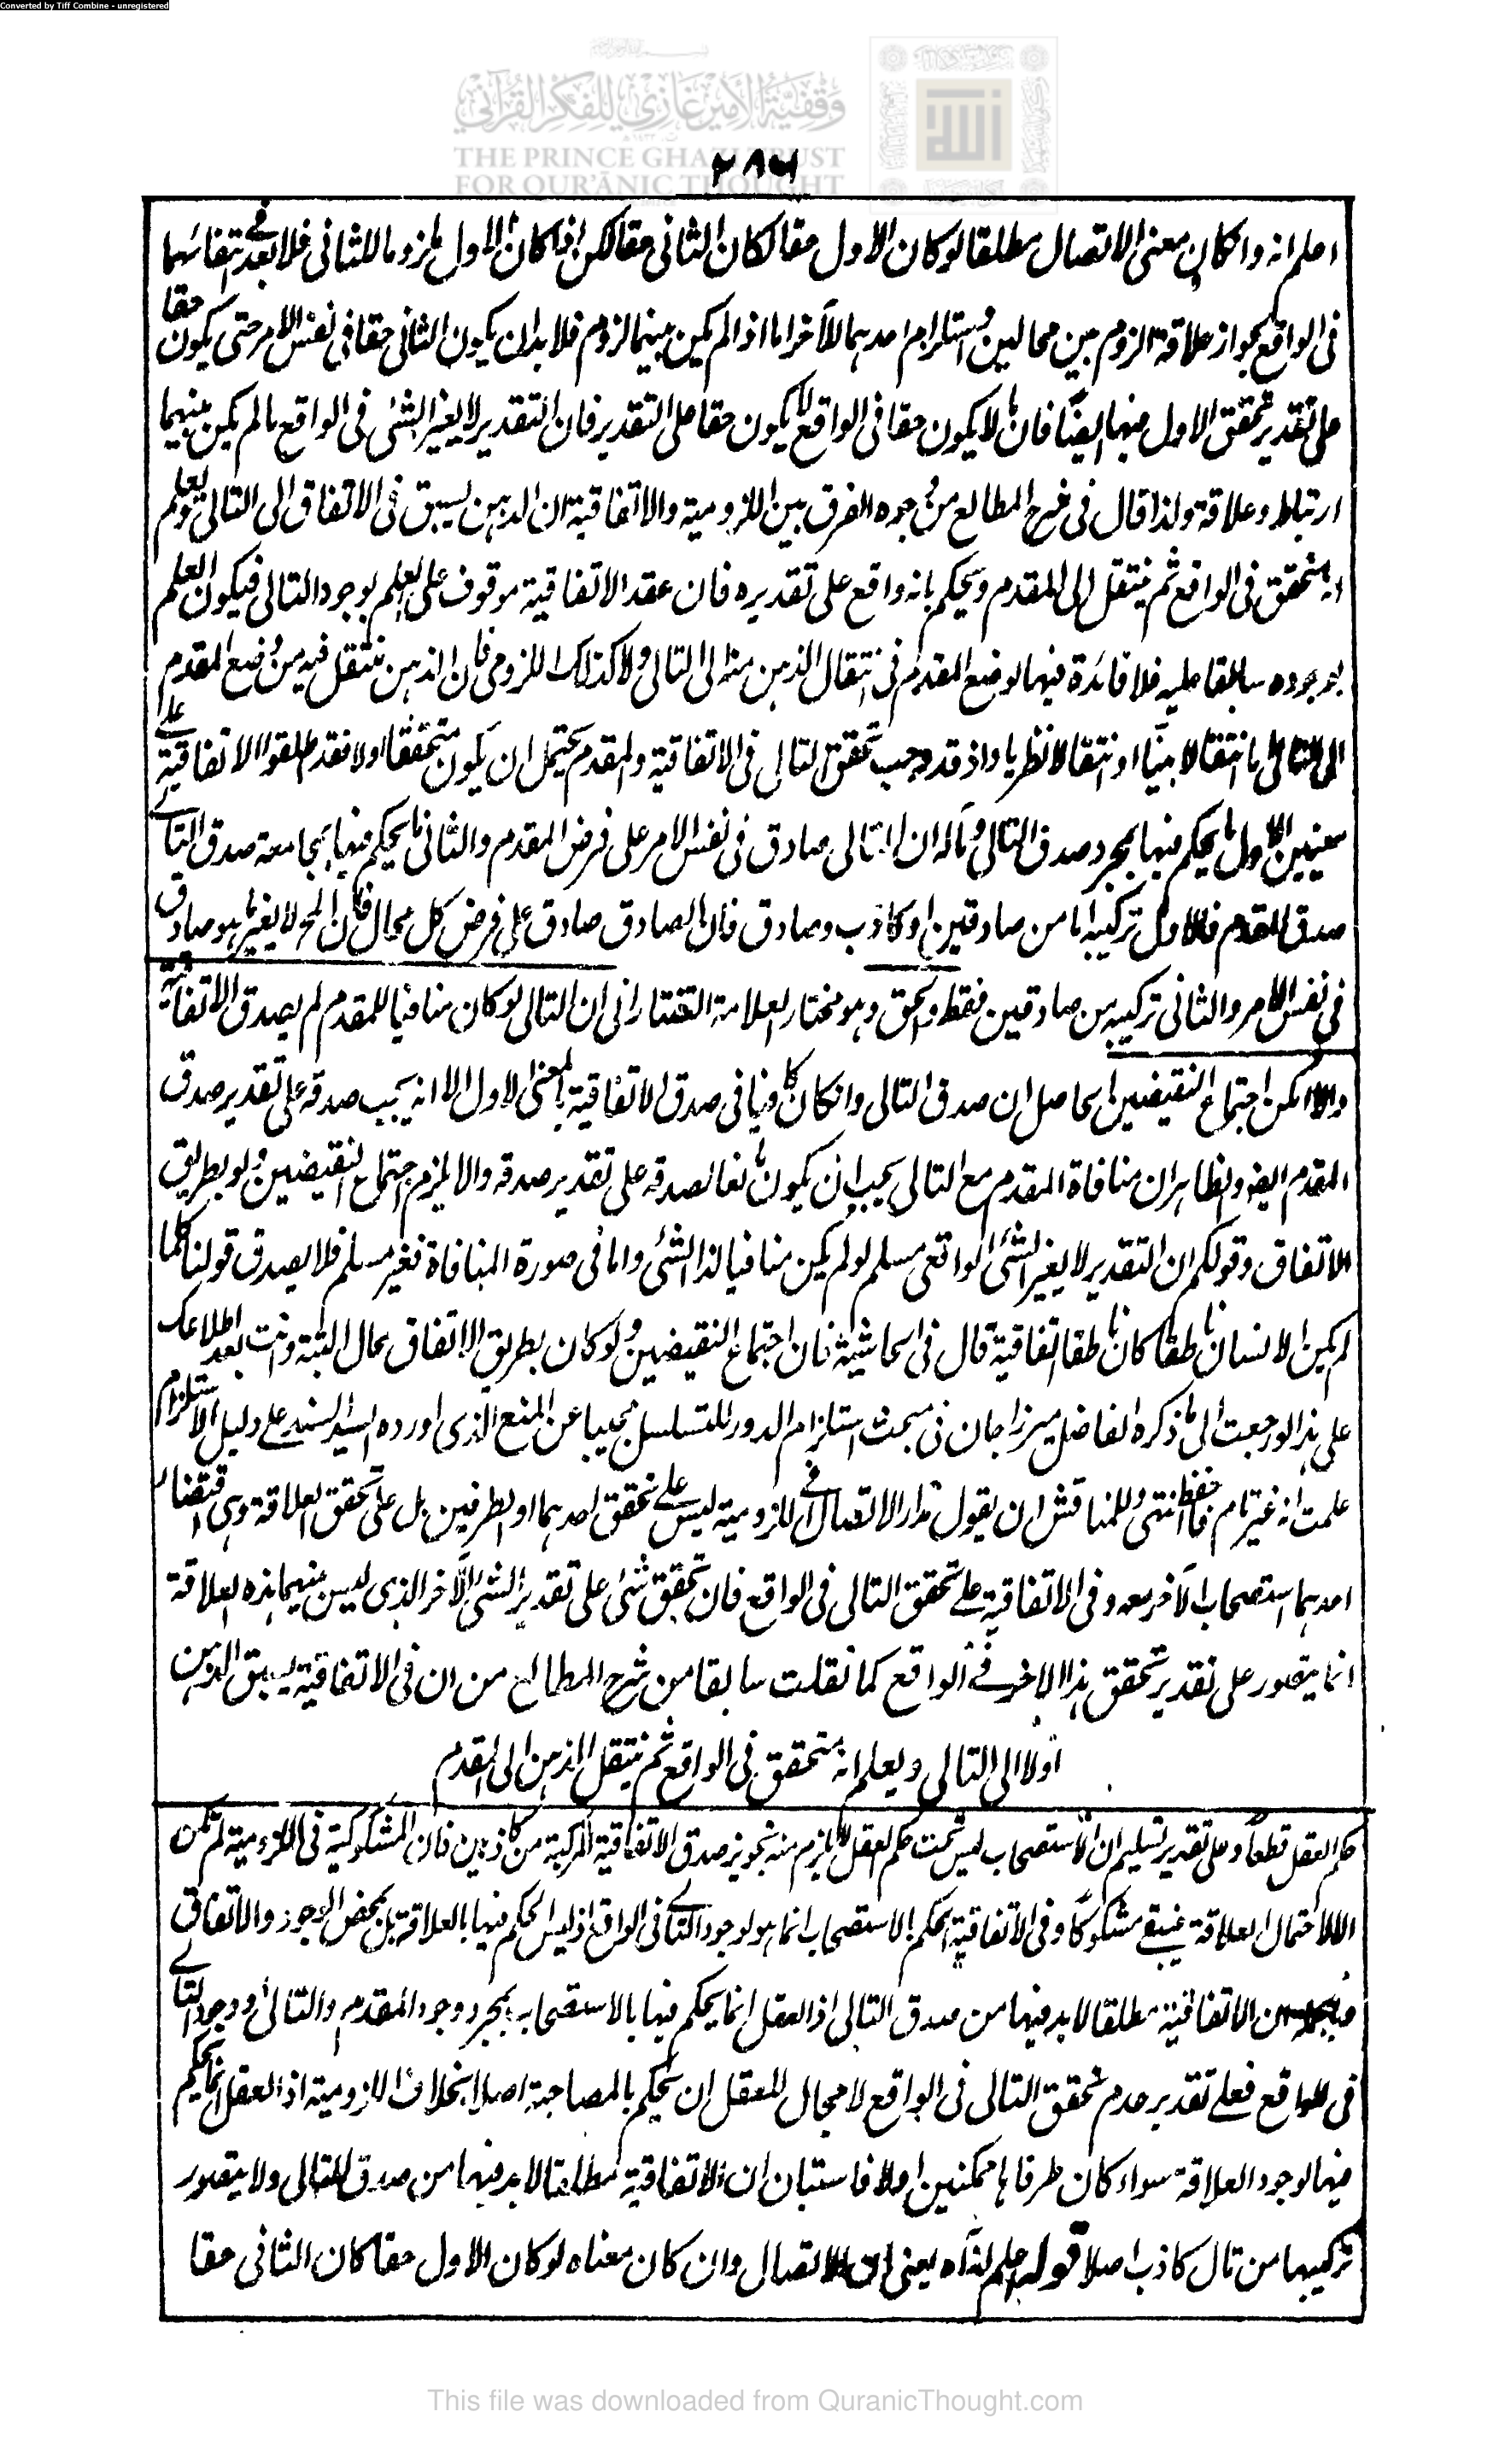 Converted by Tiff Combine - unregistered
وقفية الأمير غازي للفكر القرآني
THE PRINCE GHAZI TRUST
FOR QUR'ĀNIC THOUGHT
٢٨٦
اعلم انه وانكان معنى الاتصال مطلقا لو كان الاول حقا لكان الثاني حقا لكن اذا كان الاول ملزوما للثاني فلا بعد في انتفائهما
في الواقع لجواز علاقة اللزوم بين محالين واستلزام احدهما للآخر اما اذا لم يكن بينهما لزوم فلا بد ان يكون الثاني حقا في نفس الامر حتى يكون حقا
على تقدير تحقق الاول منهما ايضا فان ما لا يكون حقا في الواقع لا يكون حقا على التقدير فان التقدير لا يغير الشئ في الواقع ما لم يكن بينهما
ارتباط وعلاقة ولذا قال في شرح المطالع من وجوه الفرق بين اللزومية والاتفاقية ان الذهن يسبق في الاتفاق الى التالي ويعلم
انه متحقق في الواقع ثم ينتقل الى المقدم ويحكم بانه واقع على تقديره فان عقد الاتفاقية موقوف على العلم بوجود التالي فيكون العلم
بوجوده سابقا عليه فلا فائدة فيها لوضع المقدم في انتقال الذهن منه الى التالي ولا كذلك اللزومي فان الذهن ينتقل فيه من وضع المقدم
الى التالي اما انتقالا بينا او انتقالا نظريا واذ قد وجب تحقق التالي في الاتفاقية والمقدم يحتمل ان يكون متحققا اولا فقد اطلقوا الاتفاقية على
معنيين الاول ما يحكم فيها بمجرد صدق التالي ومآله ان التالي صادق في نفس الامر على فرض المقدم والثاني ما يحكم فيها بمجامعة صدق التالي
صدق المقدم فالاول تركيبه اما من صادقين او كاذب وصادق فان الصادق صادق على فرض كل محال فان المحال لا يغير ما هو صادق
في نفس الامر والثاني تركيبه من صادقين فقط والحق وهو مختار العلامة التفتازاني ان التالي لو كان منافيا للمقدم لم يصدق الاتفاقية
والا امكن اجتماع النقيضين الحاصل ان صدق التالي وانكان كافيا في صدق الاتفاقية بالمعنى الاول الا انه يجب صدقه على تقدير صدق
المقدم ايضا والظاهر ان منافاة المقدم مع التالي يجب ان يكون مانعا لصدقه على تقدير صدقه والا يلزم اجتماع النقيضين ولو بطريق
الاتفاق وقولكم ان التقدير لا يغير الشئ الواقعي مسلم لو لم يكن منافيا لذا الشئ واما في صورة المنافاة فغير مسلم فلا يصدق قولنا كلما
لم يكن الانسان ناطقا كان ناطقا اتفاقية قال في الحاشية فان اجتماع النقيضين ولو كان بطريق الاتفاق محال البتة وانت بعد اطلاعك
على هذا لو رجعت الى ما ذكره الفاضل ميرزاجان في مبحث استلزام الدور للتسلسل مجيبا عن المنع الذي اورده السيد السند على دليل الاستلزام
علمت انه غير تام فاحفظ انتهى وللمناقش ان يقول مدار الاتصال في اللزومية ليس على تحقق احدهما او الطرفين بل على تحقق العلاقة وهي اقتضاء
احدهما استصحاب الآخر معه وفي الاتفاقية على تحقق التالي في الواقع فان تحقق شئ على تقدير الشئ الآخر الذي ليس بينهما هذه العلاقة
انما يتصور على تقدير تحقق هذا الاخر في الواقع كما نقلت سابقا من شرح المطالع من ان في الاتفاقية يسبق الذهن
اولا الى التالي ويعلم انه متحقق في الواقع ثم ينتقل الذهن الى المقدم
حكم العقل قطعا وعلى تقدير تسليم ان الاستصحاب ليس تحت حكم العقل لا يلزم منه تجويز صدق الاتفاقية المركبة من كاذبين فان المشكوكية في اللزومية لم تكن
الا لاحتمال العلاقة فيبقى مشكوكا وفي الاتفاقية الحكم بالاستصحاب انما هو لوجود التالي في الواقع اذ ليس الحكم فيها بالعلاقة بل بمحض الوجود والاتفاق
ان الاتفاقية مطلقا لا بد فيها من صدق التالي اذ العقل انما يحكم فيها بالاستصحاب بمجرد وجود المقدم والتالي او وجود التالي
في الواقع فعلى تقدير عدم تحقق التالي في الواقع لا مجال للعقل ان يحكم بالمصاحبة اصلا بخلاف اللزومية اذ العقل انما يحكم
فيها لوجود العلاقة سواء كان طرفاها ممكنين اولا فاستبان ان الاتفاقية مطلقا لا بد فيها من صدق التالي ولا يتصور
تركيبها من تال كاذب اصلا قوله اعلم انه آه يعني ان الاتصال وان كان معناه لو كان الاول حقا كان الثاني حقا
This file was downloaded from QuranicThought.com